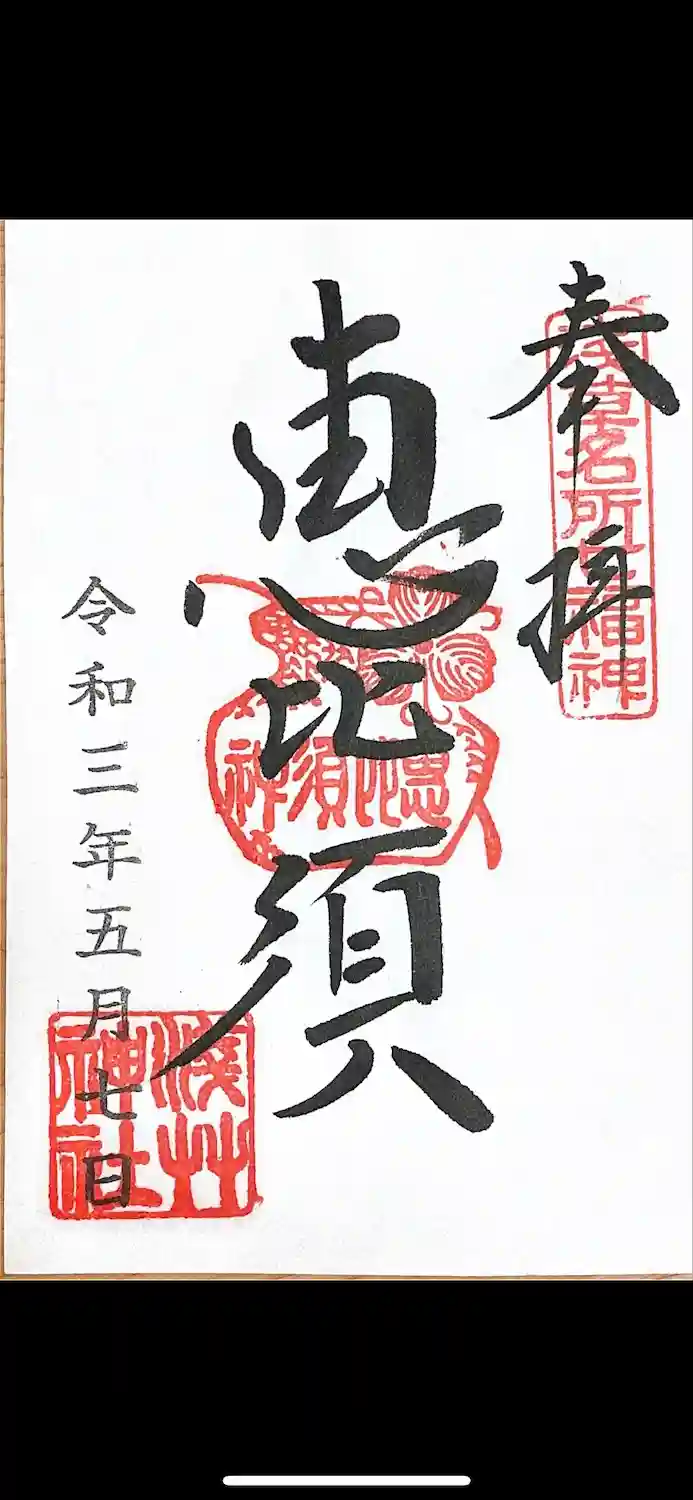 奉拝
浅草名所七福神
恵比須
恵比須神
令和三年五月七日
浅草神社